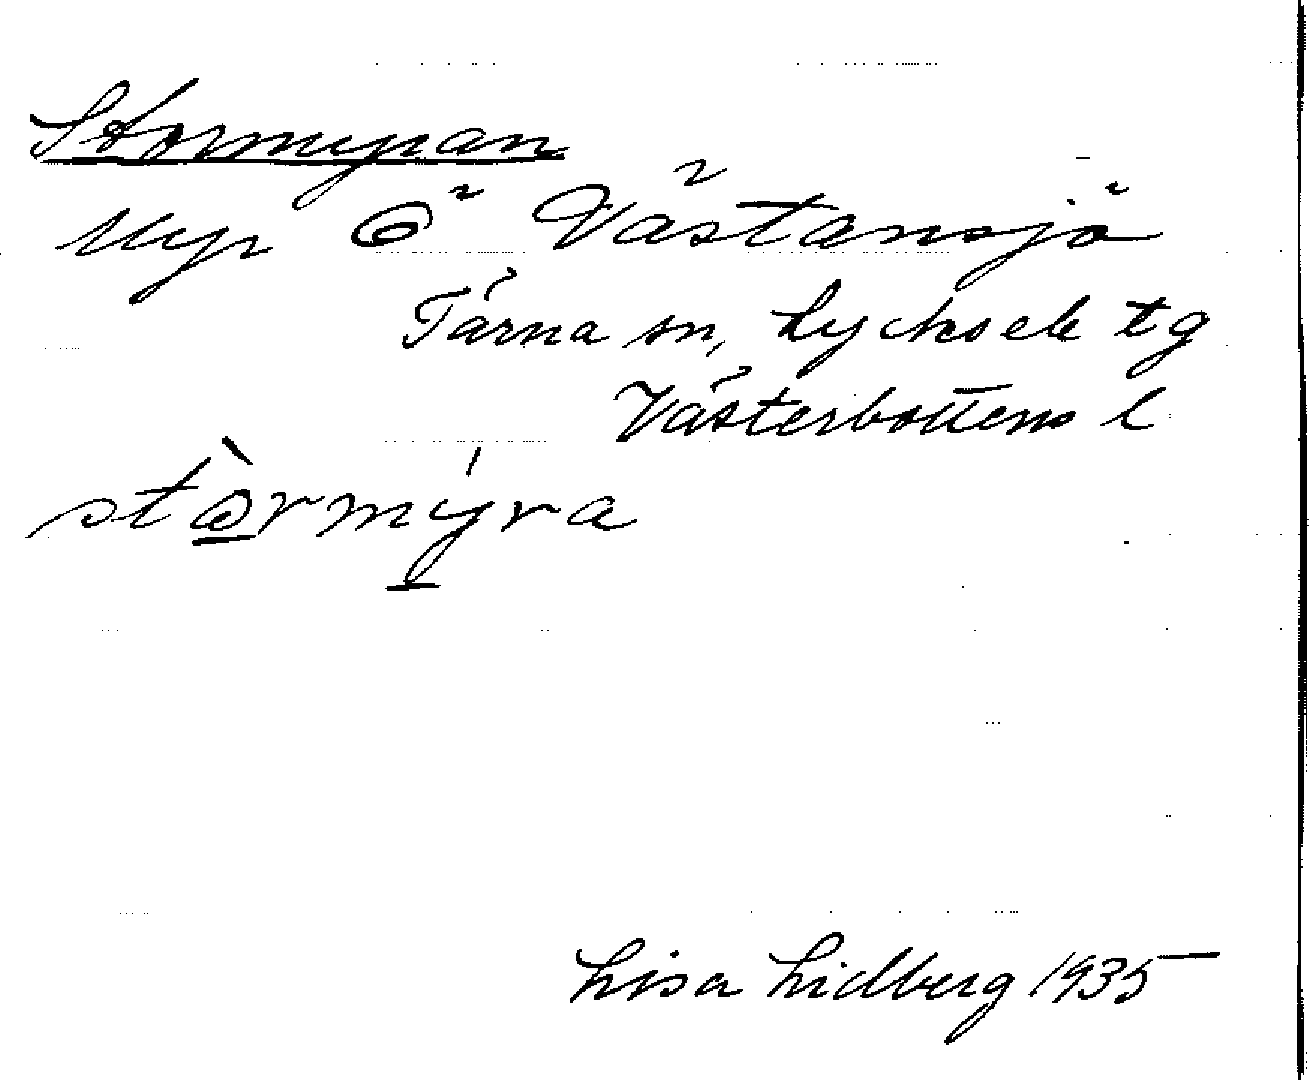 Stormyran
Myr Ö Västansjö
Tärna sn, Lycksele tg
Västerbottens l
stòrmýra
Lisa Lidberg 1935